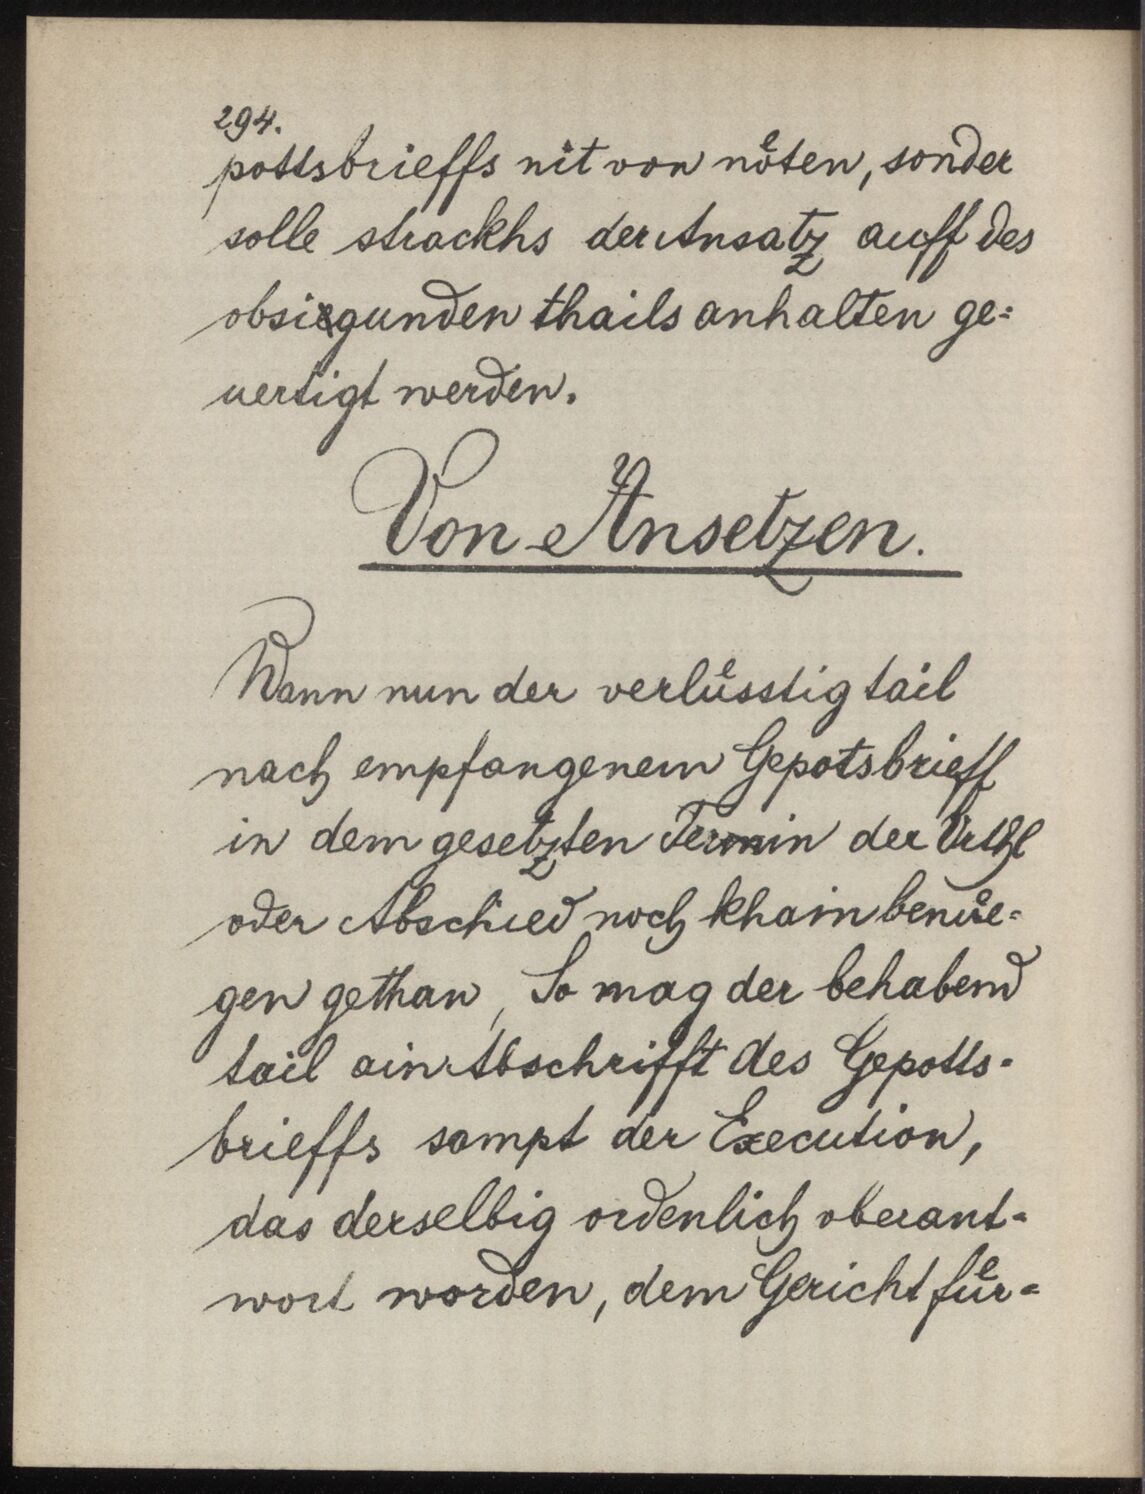 294.
pottsbrieffs nit von nöten, sonder
solle strackhs der Ansatz auff des
obsiegunden thails anhalten ge=
uertigt werden.
Von Ansetzen.
Wann nun der verlüsstig tail
nach empfangenem Gepotsbrieff
in dem gesetzten Termin der Vrthl
oder Abschied noch khain benüe=
gen gethan, So mag der behabend
tail ain Abschrifft des Gepotts-
brieffs sampt der Execution,
das derselbig ordenlich oberant-
wort worden, dem Gericht für=